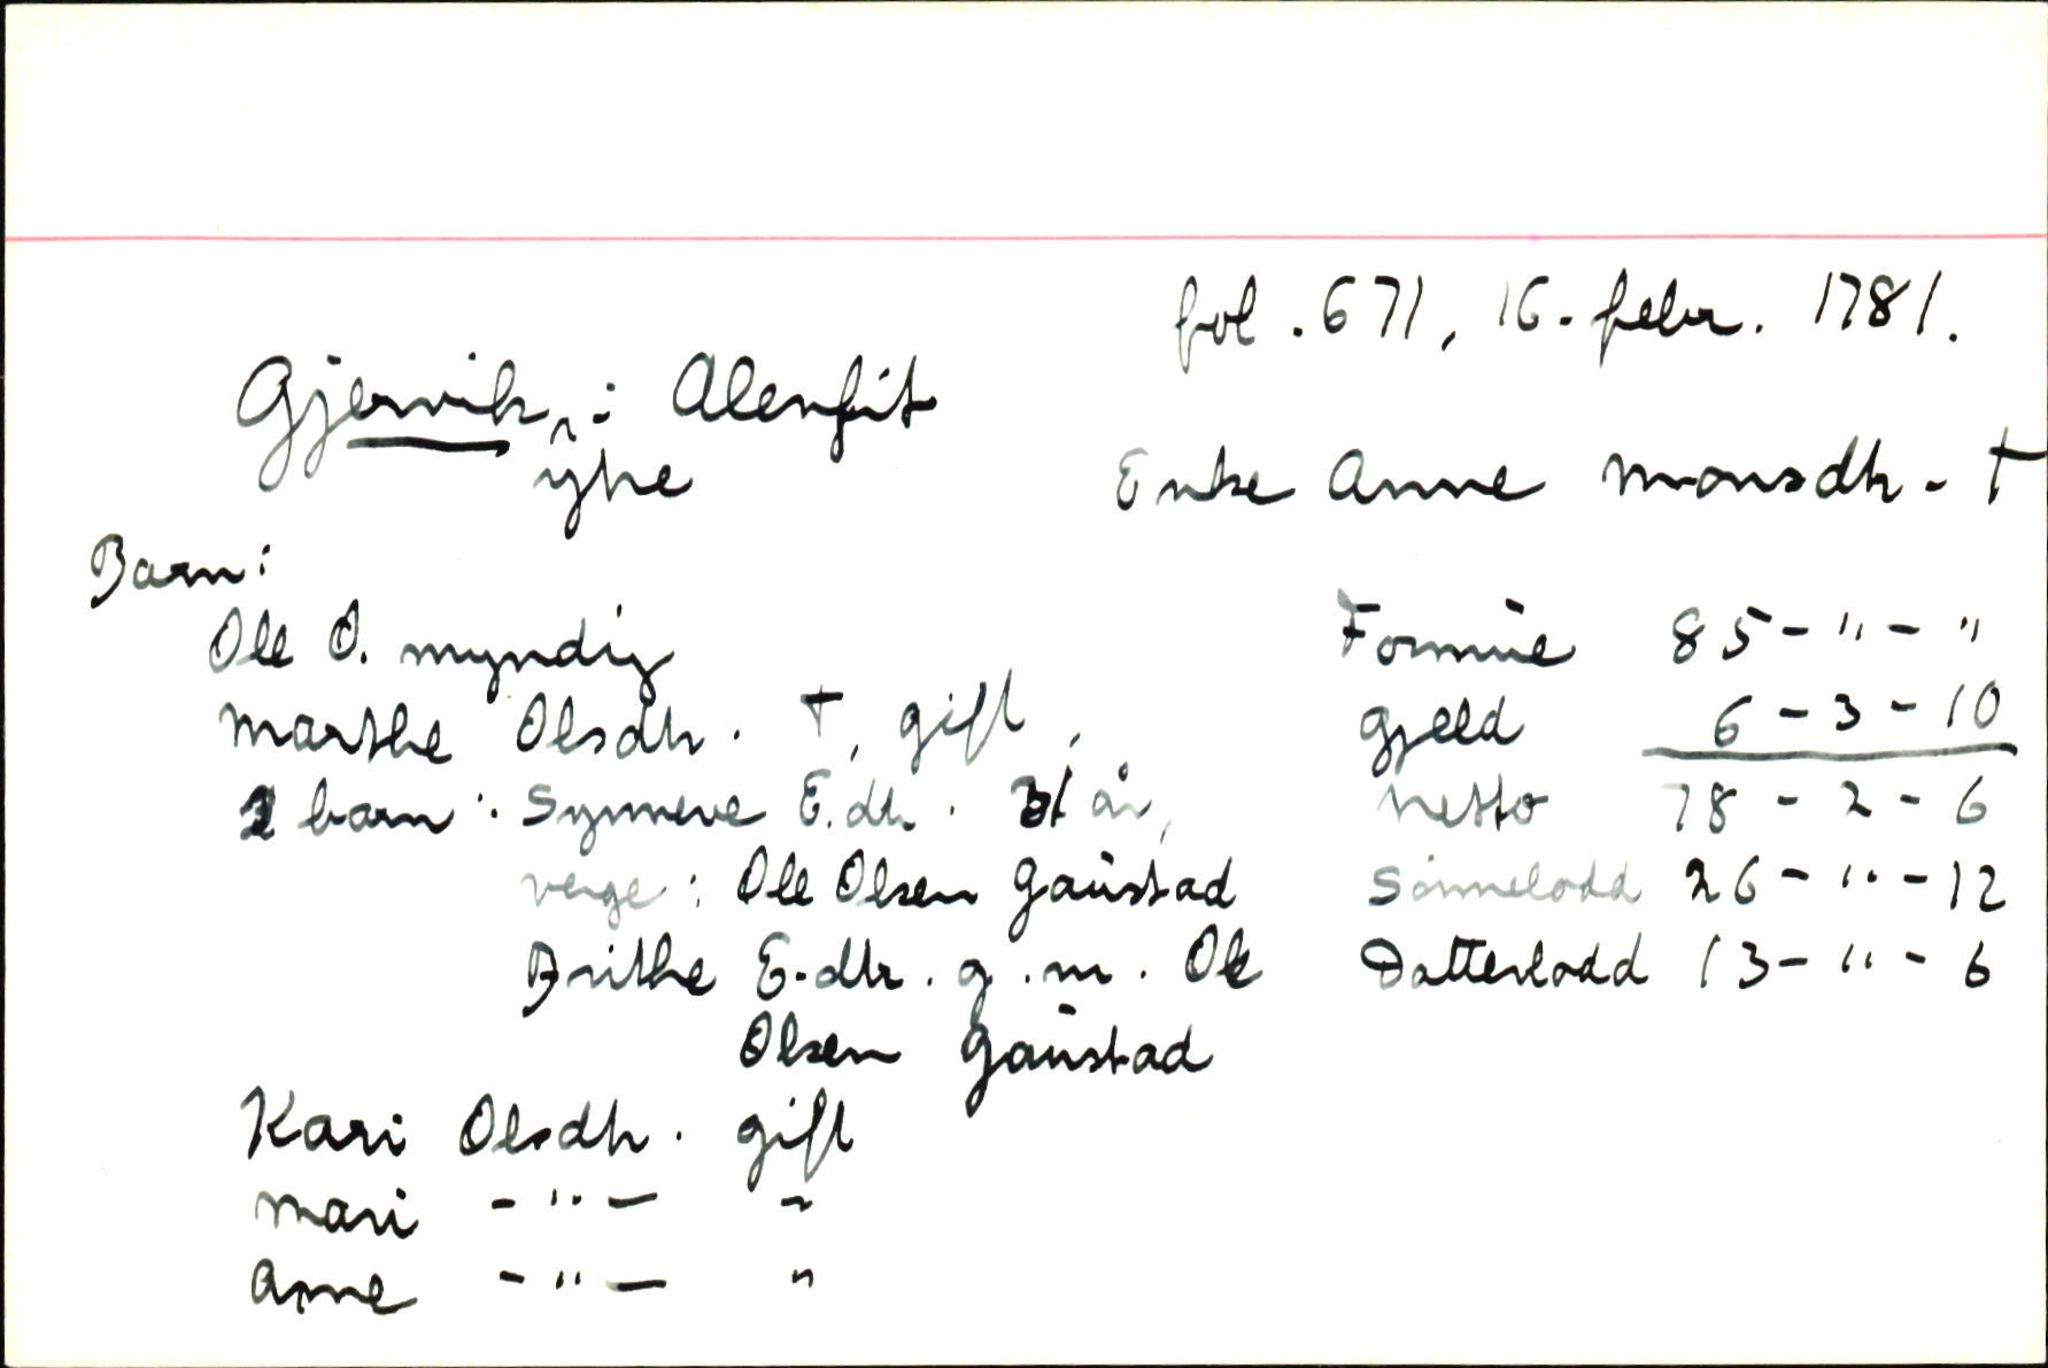 fol. 671, 16. febr. 1781.
Gjervik, i Alenfit
yhe
Enke Anne Monsdtr. †
Barn:
Ole O. myndig
Formue 85 - " - "
Marthe Olsdtr. †, gift,
Gjeld 6 - 3 - 10
2 barn: Synneve E.dtr. 31 år,
Netto 78 - 2 - 6
verge: Ole Olsen Gaustad
Sønnelodd 26 - " - 12
Brithe E.dtr. g.m. Ole
Datterlodd 13 - " - 6
Olsen Gaustad
Kari Olsdtr. gift
Mari - " - "
Anne - " - "